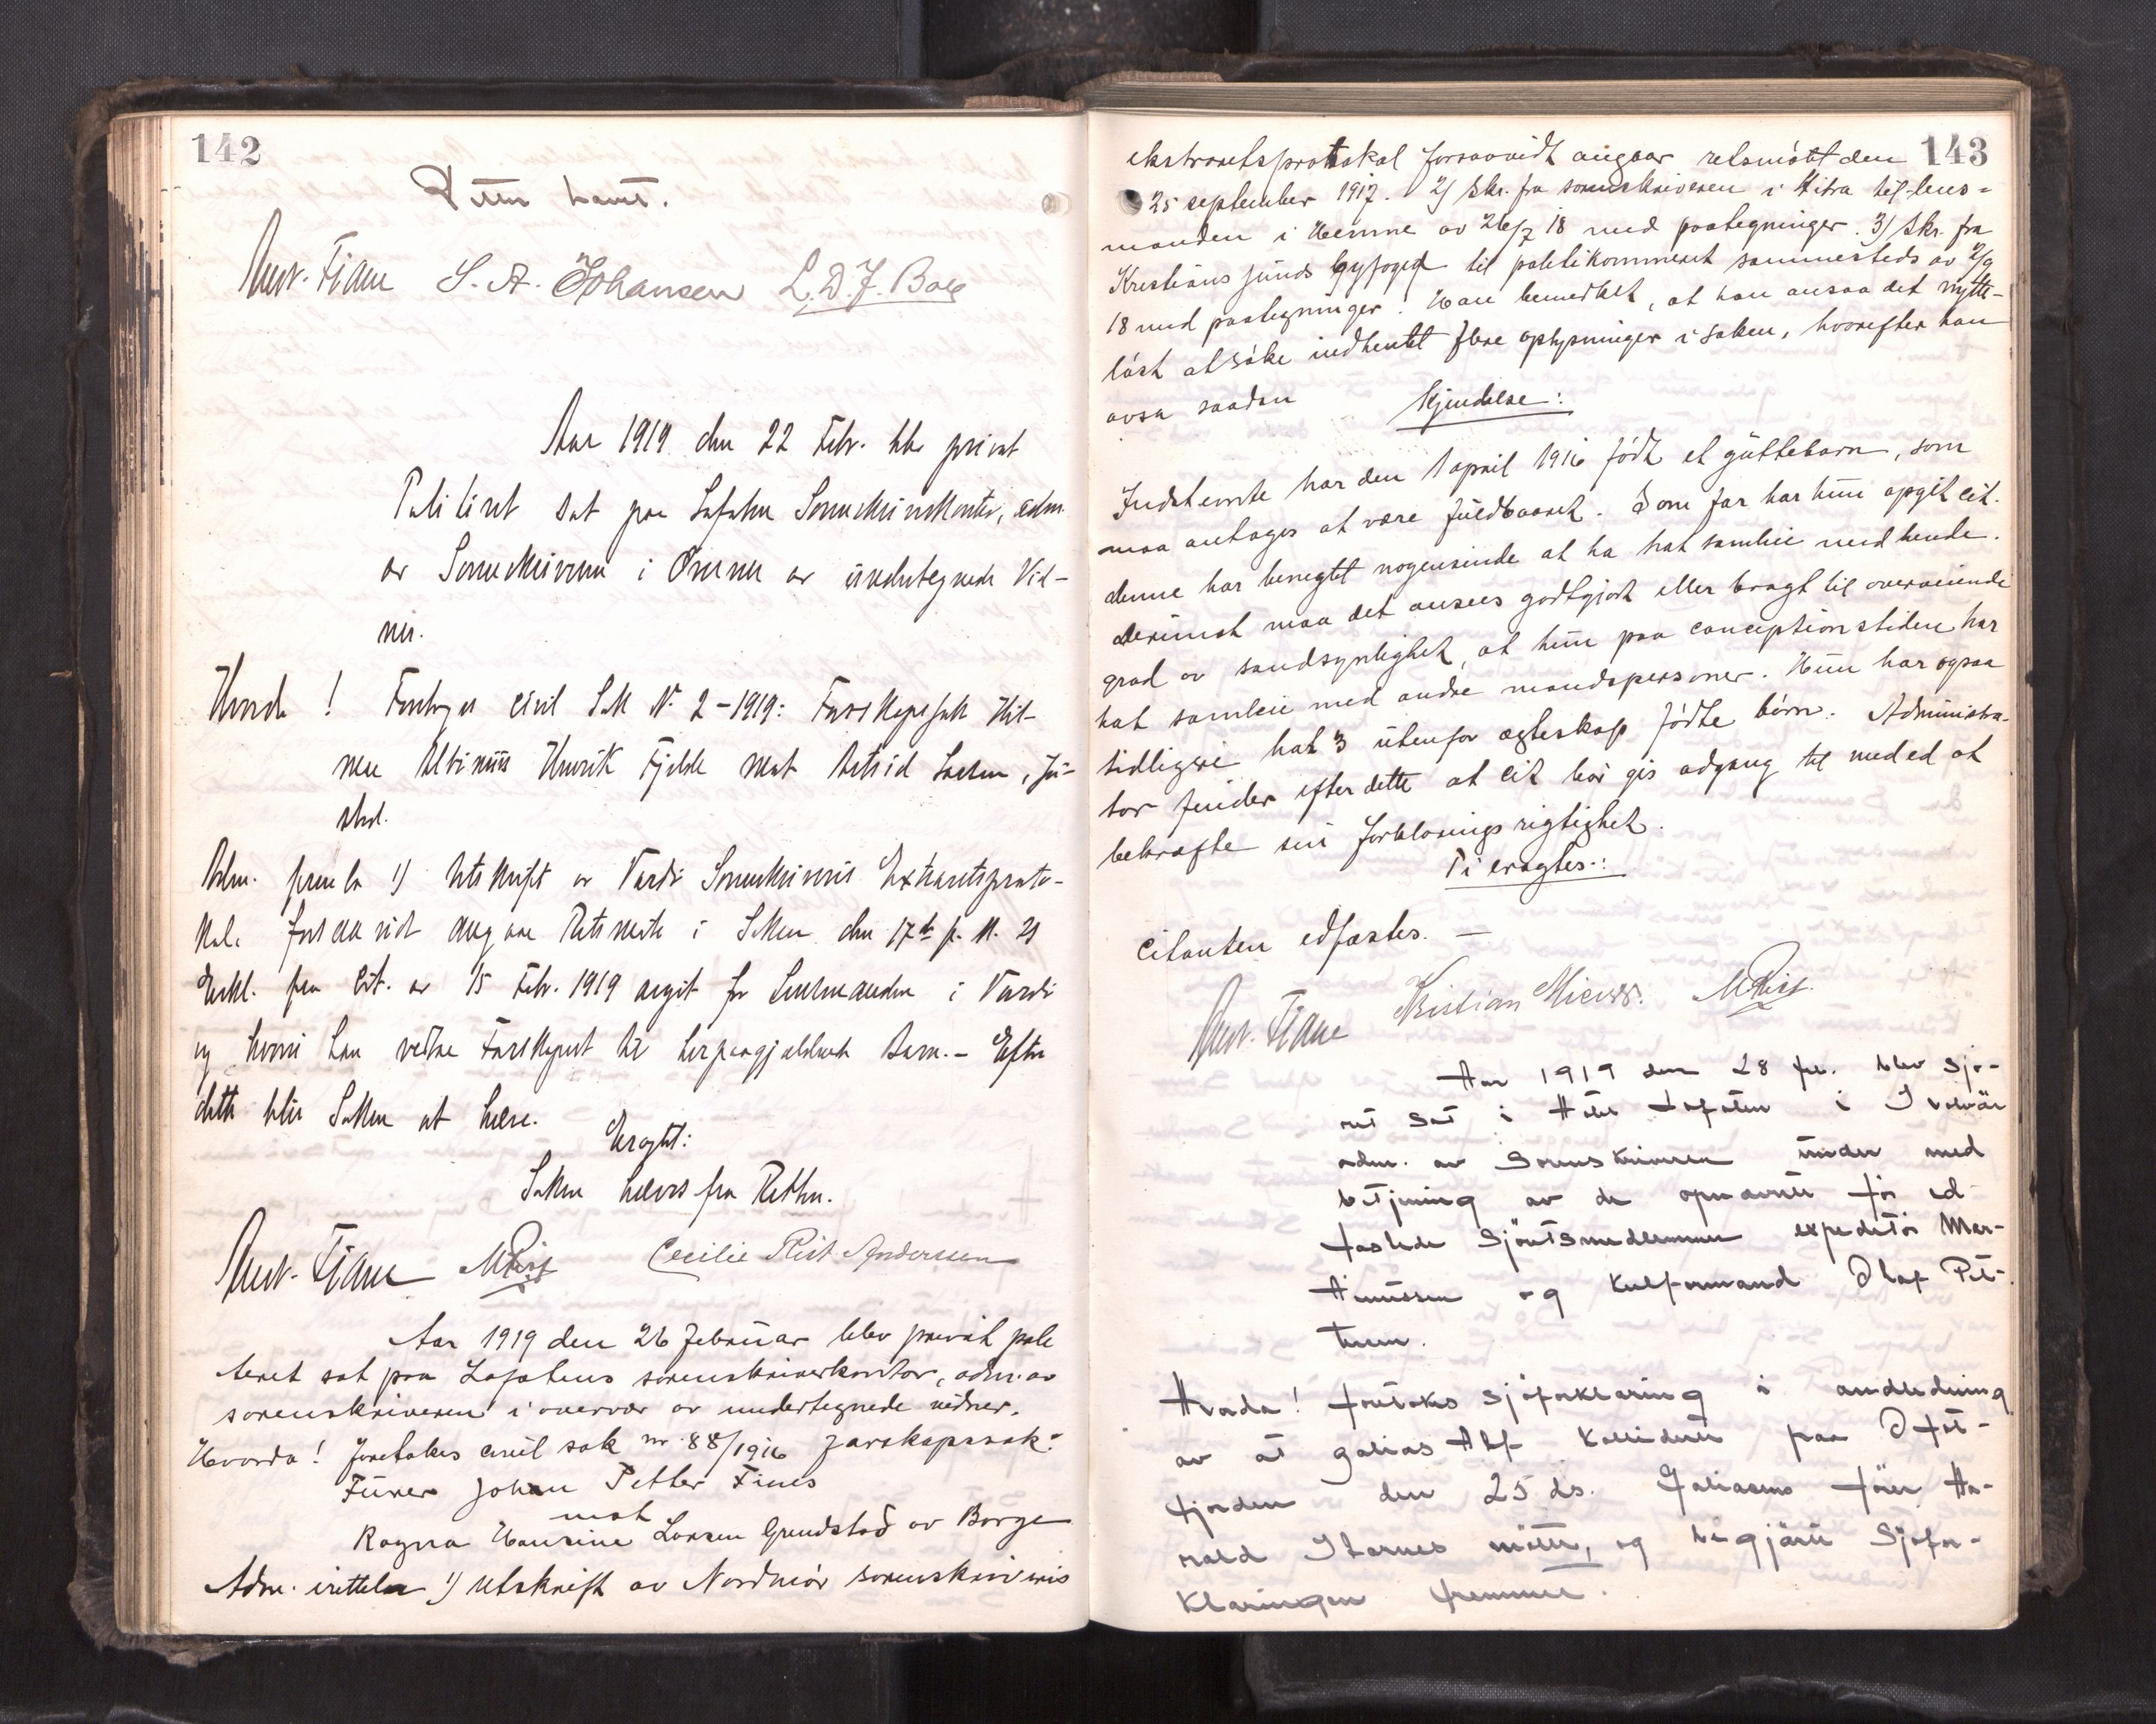 142
Retten hævet.
S. A. Johansen L. D. J. Bol
Aar 1919 den 22 Febr. blev privat
Politiret sat paa Lofoten Sorenskriverkontor, adm.
av Sorenskriveren i Overvær av undertegnede Vid-
ner.
Hvorda! Foretoges civil Sak Nr. 2-1919: Farskapssak
Henrik Fjelde mot Astrid Larsen,
Adm. fremla 1) Utskrift av Sorenskriveris Extraretsproto-
kol forsaavidt angaar Retsmøte i Saken den 17de f. M. 2)
Erkl. fra Cit. av 15 Febr. 1919 avgit for Lensmanden i
og hvori han vedtar Farskapet til heromgjældende Barn. - Efter
dette blir Saken at hæve.
Eragtet:
Saken hæves fra Retten.
Cecilie Rist Anderssen
Aar 1919 den 26 februar blev privat poli
teret sat paa Lofotens sorenskriverkontor, adm. av
sorenskriveren i overvær av undertegnede vidner.
Hvorda! Foretokes civil sak nr. 88/1916 farskapssak:
Furer Johan Petter Fines
mot
Ragna Hansine Larsen Grundstad av Borge
Adm. irettela 1) Utskrift av Nordmør sorenskriveris
143
ekstraretsprotokol forsaavidt angaar retsmøtet den
25 september 1917. 2) Skr. fra sorenskriveren i Hitra til lens-
manden i Hemne av 26/7 18 med paategninger. 3) Skr. fra
Kristiansunds byfoged til politikammeret sammesteds av 2/9
18 med paategninger. Han bemerket, at han ansaa det nytte-
løst at søke indhentet flere oplysninger i saken, hvorefter han
avsa saadan Kjendelse:
Indstevnte har den 1 april 1916 født et guttebarn, som
maa antages at være fuldbaaret. Som far har hun opgit cit.
denne har benegtet nogensinde at ha hat samleie med hende.
derimot maa det ansees godtgjort eller bragt til overveiende
grad av sandsynlighet, at hun paa conceptionstiden har
hat samleie med andre mandspersoner. Hun har ogsaa
tidligere hat 3 utenfor ægteskap fødte børn. Administra-
tor finder efter dette at cit bør gis adgang til med ed at
bekræfte sin forklarings rigtighet.
Ti eragtes:
Citanten edfæstes. —
Kristian
Aar 1919 den 28 fbr. blev sjø-
ret sat i Hotel Lofoten i Svolvær
adm. av Sorenskriveren under med
betjening av de opnævnte før ed-
fæstede Sjøretsmedlemmer expeditør Mar.
Hinussen og Kulformand Olaf Pet-
tersen.
Hvorda! foretokes sjøforklaring i anledning
av at galias Alf kolliderte paa Ofot-
fjorden den 25 ds. Galiasens fører Ha-
rald Starnes møtte, og begjærte Sjøfor-
klaringen fremmet.